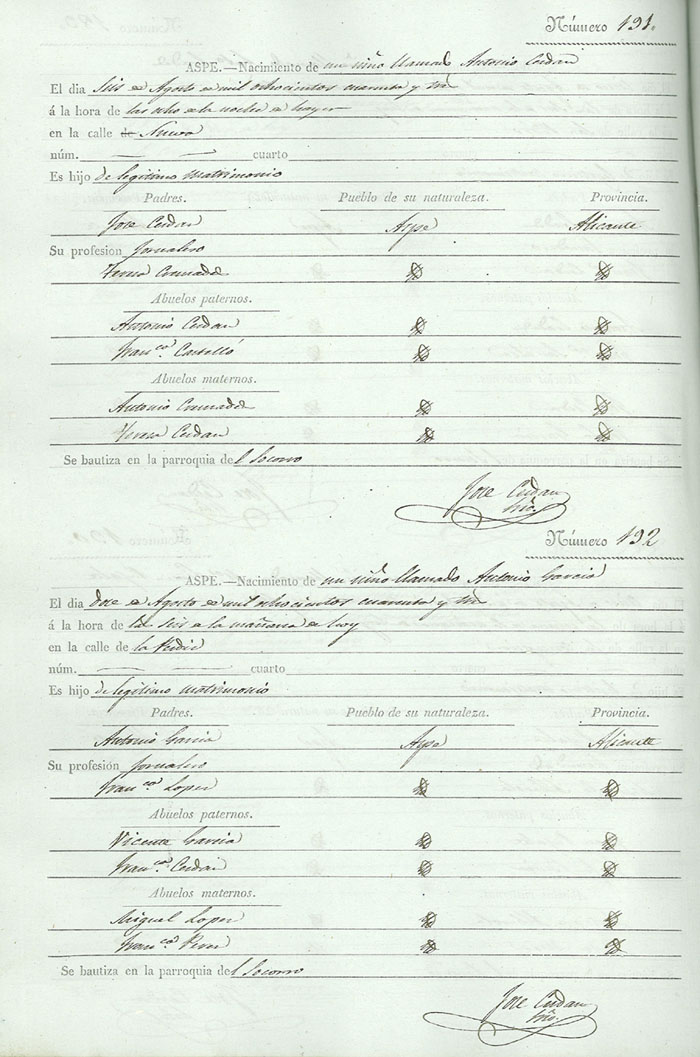 Número 191.
ASPE.—Nacimiento de un niño llamado Antonio Cerdan
El dia Seis de Agosto de mil ochocientos cuarenta y tres
á la hora de las ocho de la noche de hayer
en la calle de Nueva
núm. cuarto
Es hijo de legitimo matrimonio
Padres. Pueblo de su naturaleza. Provincia.
Jose Cerdan Aspe Alicante
Su profesion Jornalero
Teresa
Abuelos paternos.
Antonio Cerdan
Franca. Castelló
Abuelos maternos.
Antonio
Teresa Cerdan
Se bautiza en la parroquia del Socorro
Jose Cerdan
Srio.
Número 192
ASPE.—Nacimiento de un niño llamado Antonio Garcia
El dia doce de Agosto de mil ochocientos cuarenta y tres
á la hora de las seis de la mañana de hoy
en la calle de la
núm. cuarto
Es hijo de legitimo matrimonio
Padres. Pueblo de su naturaleza. Provincia.
Antonio Garcia Aspe Alicante
Su profesión Jornalero
Franca. Lopez
Abuelos paternos.
Vicente Garcia
Franca. Cerdan
Abuelos maternos.
Miguel Lopez
Franca. Perez
Se bautiza en la parroquia del Socorro
Jose Cerdan
Srio.